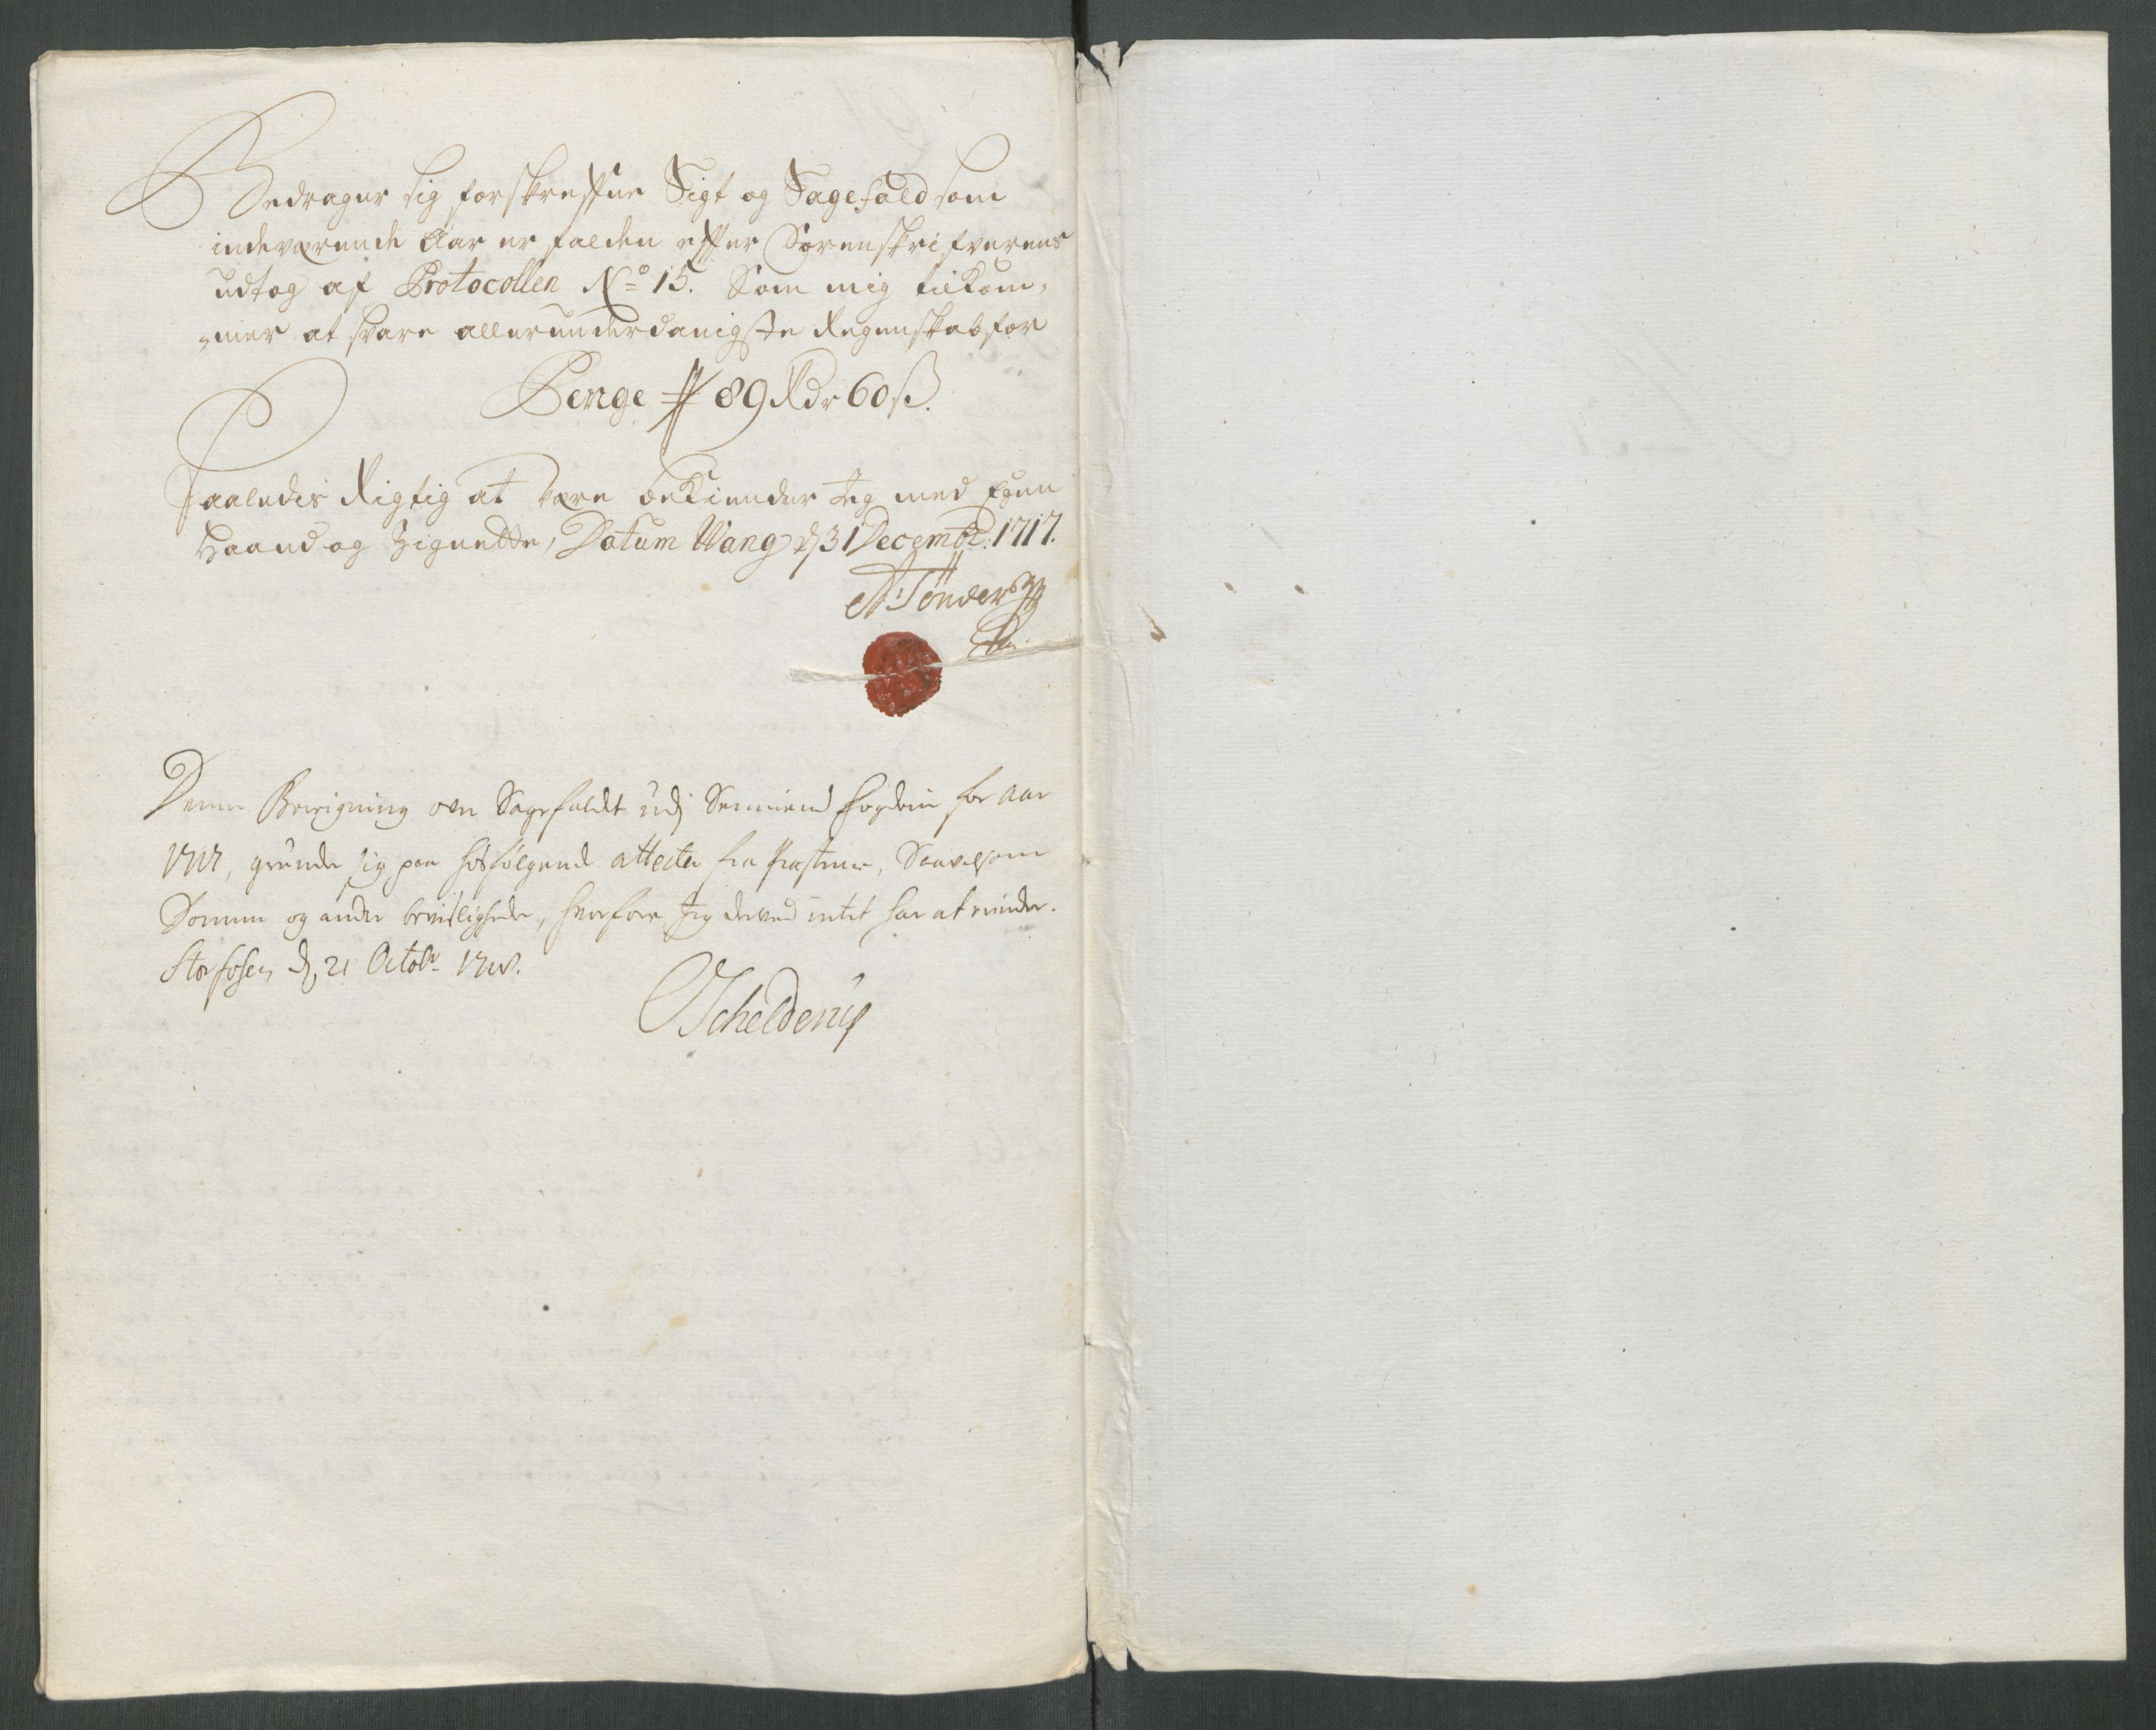 Bedrager sig forskreffne Sigt og Sagefald som
indeværende Aar er falden effter Sorenskrifverens
udtog af Protocollen No 15. Som mig tilkom-
-mer at svare allerunderdanigste Regenskab for
Penge 89 Rdr 60 ß.
Saaledis Rigtig at være bekiender Jeg med Egen
Haand og Zignette, Datum Wang d 31 Decembr: 1717.
A: Tønder
Denne Beregning over Sagefaldt udj Senniens fogderie for Aar
1717, grunder sig paa hosfølgende attester fra Præsterne, Saavelsom
Domme og andre bevisligheder, hvorfore Jeg derved intet har at erindre.
Storfosen d, 21 Octobr 1718.
Schelderup